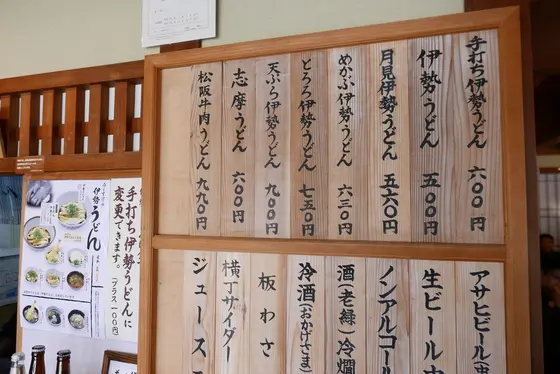 手打ち伊勢うどん 六〇〇円
伊勢うどん 五〇〇円
月見伊勢うどん 五六〇円
めかぶ伊勢うどん 六三〇円
とろろ伊勢うどん 七五〇円
天ぷら伊勢うどん 九〇〇円
志摩うどん 六〇〇円
松阪牛肉うどん 九九〇円
アサヒビール(中
生ビール中
ノンアルコール
酒(老緑)冷燗
冷酒(おかげさま)
板わさ
横丁サイダー
ジュース
手打ち伊勢うどんに
変更できます。
(プラス一〇〇円)
伊勢うどん